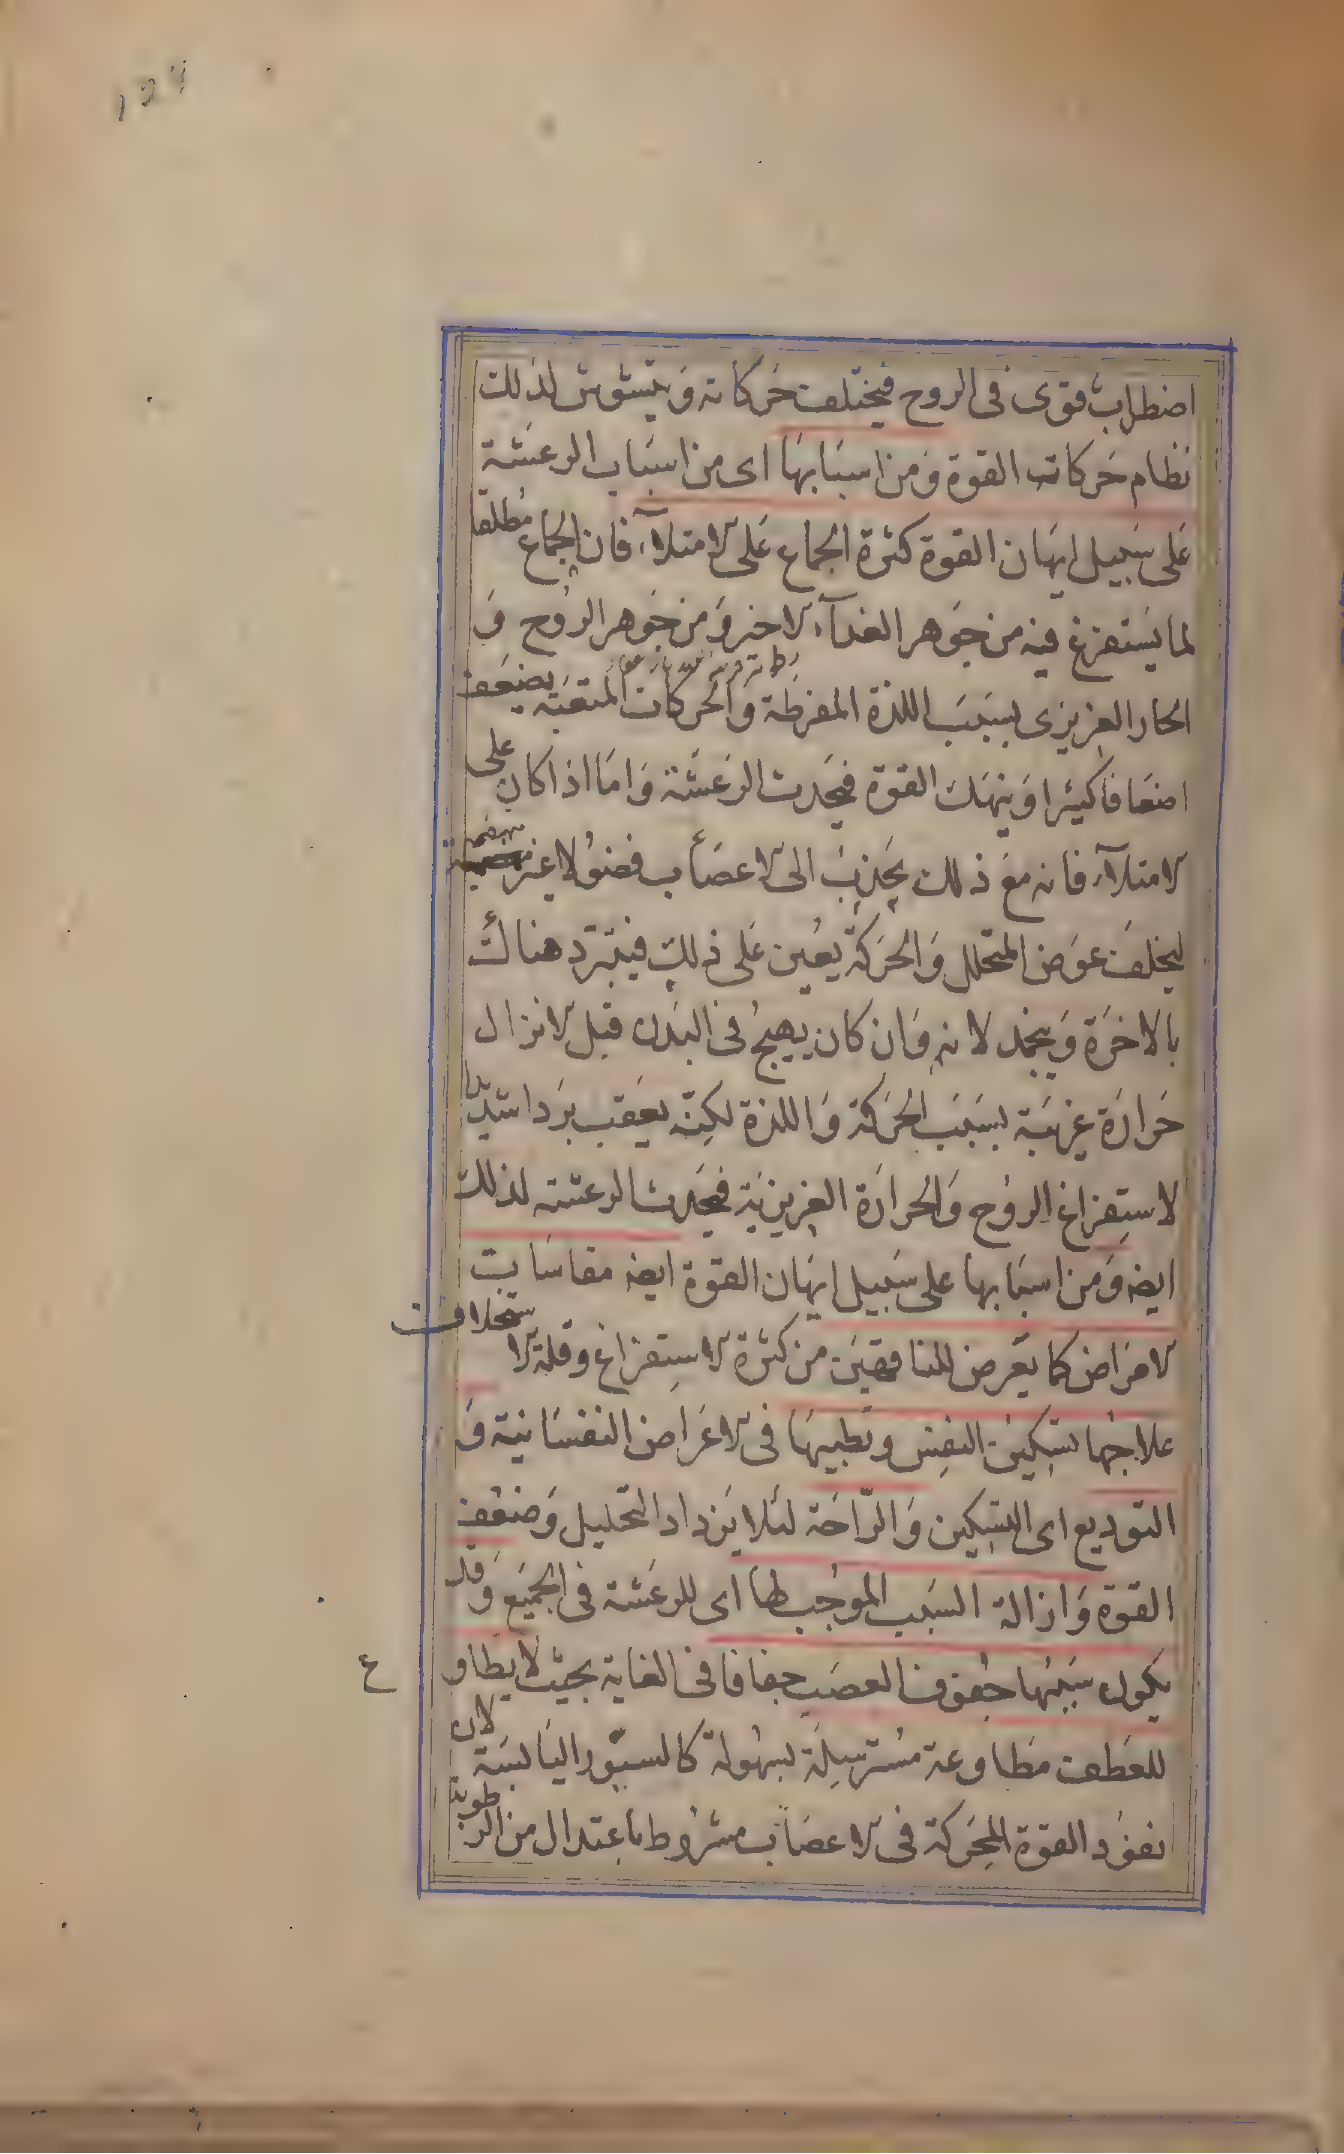 اضطراب قوى فى الروح فيختلف حركاته وَيتشوش لذلك
نظام حَركات القوة وَمن اسبَابهَا اى من اسبَاب الرعشة
عَلى سَبيل ايهَان القوة كثرة الجماع عَلى الامتلآء فان الجماع مطلقا
لما يَستفرغ فيه من جَوهر الغذآء الاخير وَمن جَوهر الروُح وَ
الحار الغريزى بسبَب اللذة المفرطَة وَالحركات المتعبَة يضعَف
اضعَافا كثيرا وَينهَك القوة فيحَدث الرعَشة وَامَا اذا كان على
الامتلآء فانه مَع ذلك يجَذب الى الاعصَاب فضوُلا غير منهضمة
ليخلفَ عوَض المتحلل وَالحَركة يعُين عَلى ذلك فيتبَرد هناك
بالاخرَة وَيجمد لانه وَان كان يهيج فى البَدن قبل الانزال
حَرارَة غريَبة بسَبَب الحَركة وَاللذة لكنِّه يعقب بَردا شديدا
لاستِفراغ الروُح وَالحَرارَة الغريزيَة فيحَدث الرعشة لذلك
ايضه وَمن اسبَابها على سَبيل ايهَان القوة ايضه مقاسَات
الامراض كما يَعرض للناقهين من كثرة الاستِفراغ وقلة الا
ستخلاف
علاجُهَا تسَكين النفسِ وتطييبهَا فى الاعَراض النفسَانية وَ
التوديع اى التسكين وَالرَّاحَة لئلا يَزداد التحَليل وَضعُف
القوة وَازالة السَبَب الموُجب لهَا اى للرعَشة فى الجميَع وَقد
يكون سَببُهَا جفُوف العصَب جفافا فى الغاية بحيث لا يطاو
ع
للعَطف مطَاوعة مسُترسِلَة بسهُولة كالسيوُر اليَابسَة لان
نفوُد القوة المحَركة فى الاعصَاب مشرُوط باعِتدال من الرطوبة